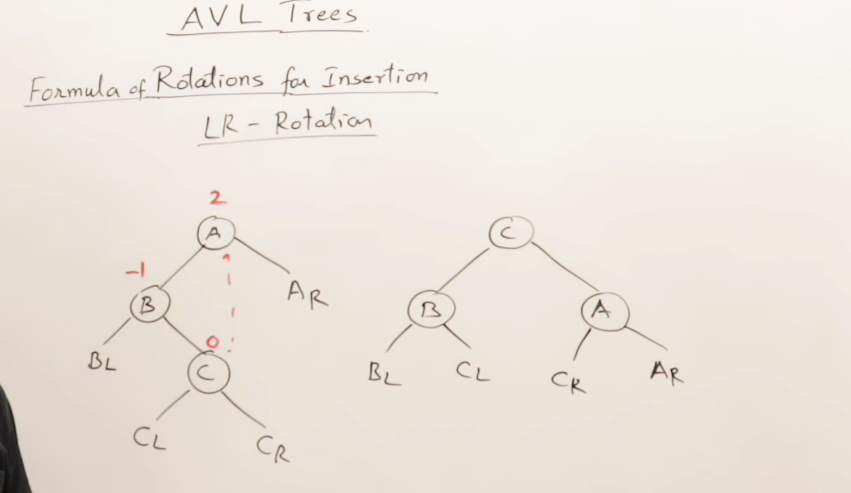 AVL Trees
Formula of Rotations for Insertion
LR - Rotation
2
A
C
-1
B
AR
B
A
BL
0
C
BL
CL
CR
AR
CL
CR